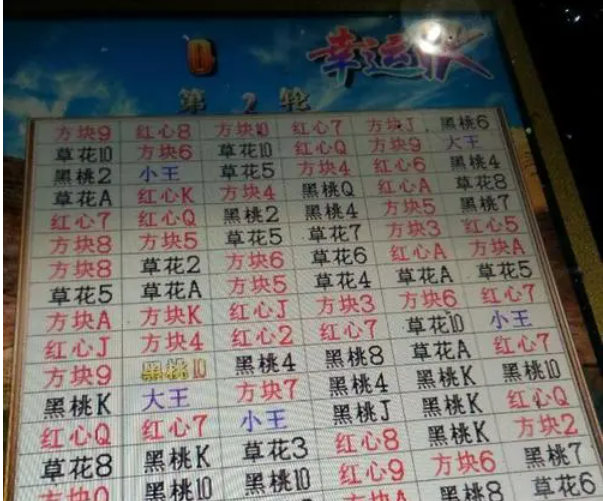 幸运
第2轮
方块9 红心8 方块10 红心7 方块J 黑桃6
草花10 方块6 草花10 红心Q 方块9 大王
黑桃2 小王 草花5 方块4 红心6 黑桃4
草花A 红心K 方块4 黑桃Q 红心A 草花8
红心7 红心Q 黑桃2 黑桃4 方块5 黑桃7
方块8 方块5 草花5 草花7 方块3 红心5
方块8 草花2 方块6 草花6 红心A 方块A
草花5 草花A 方块5 草花4 草花A 草花5
方块A 方块K 红心J 方块3 方块6 红心7
红心J 方块4 红心2 红心7 草花10 小王
方块9 黑桃10 黑桃4 黑桃8 草花A 红心7
黑桃K 大王 方块7 黑桃4 黑桃K 黑桃10
红心Q 红心7 小王 黑桃J 黑桃K 红心Q
草花8 黑桃K 草花3 红心8 黑桃K 方块2
黑桃10 黑桃10 红心9 方块6 黑桃7
方块A 黑桃8 草花6